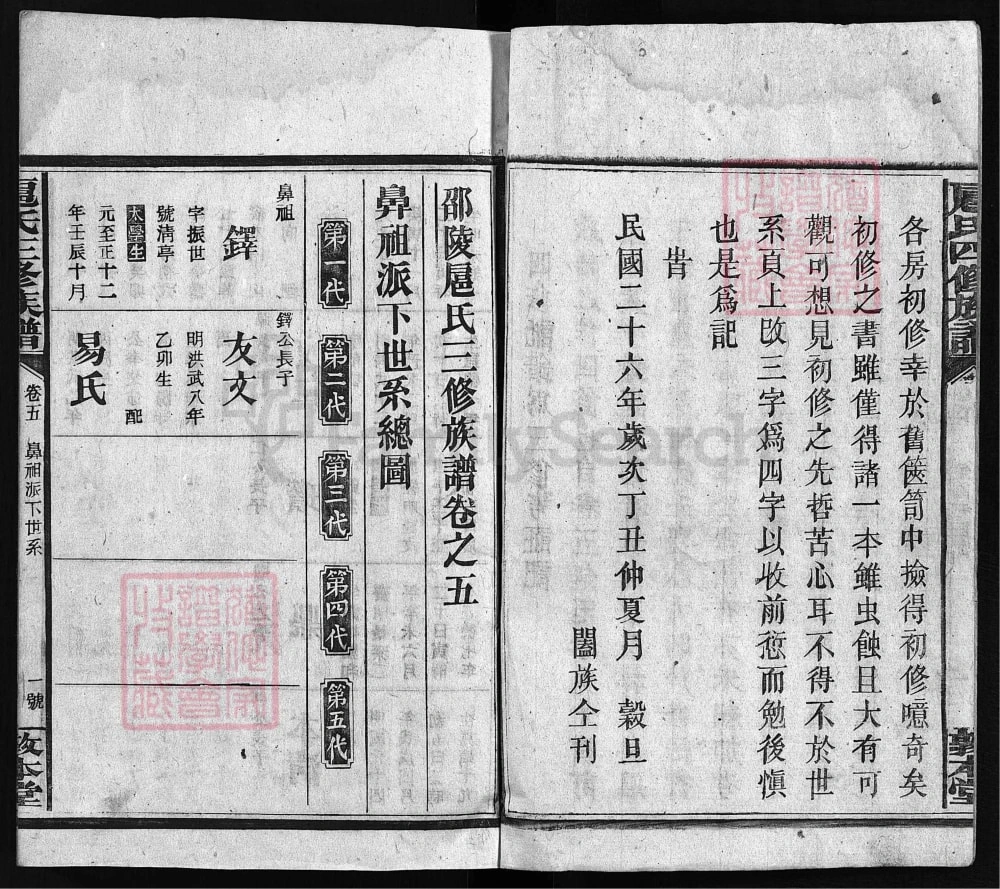 扈氏四修族譜
敦本堂
各房初修幸於舊篋笥中撿得初修噫奇矣
初修之書雖僅得諸一本雖虫蝕且大有可
觀可想見初修之先哲苦心耳不得不於世
系頁上改三字爲四字以收前愆而勉後愼
也是爲記
旹
民國二十六年歲次丁丑仲夏月　穀旦
闔族仝刊
邵陵扈氏三修族譜卷之五
鼻祖派下世系總圖
第一代
第二代
第三代
第四代
第五代
鼻祖
鐸
字振世
號清亭
太學生
元至正十二
年壬辰十月
鐸公長子
友文
明洪武八年
乙卯生
配
易氏
扈氏三修族譜
卷五
鼻祖派下世系
一號
敦本堂
FamilySearch